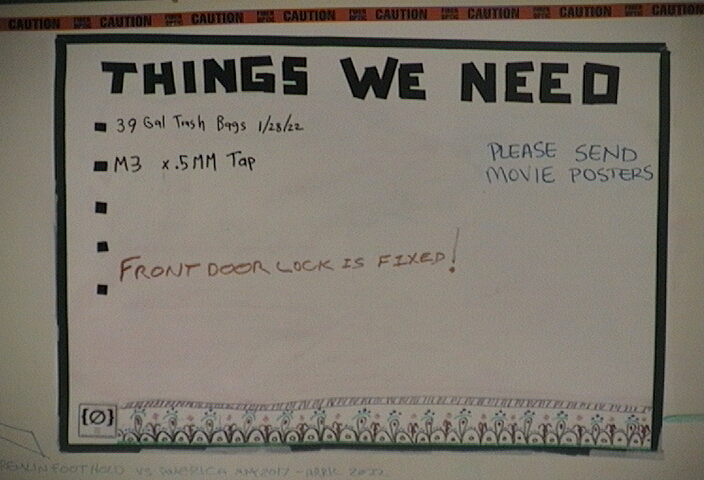 CAUTION CAUTION CAUTION CAUTION CAUTION CAUTION CAUTION CAUTION
THINGS WE NEED
39 Gal Trash Bags 1/28/22
M3 x .5MM Tap
PLEASE SEND
MOVIE POSTERS
FRONT DOOR LOCK IS FIXED!
{Ø}
FOOTHOLD VS AMERICA